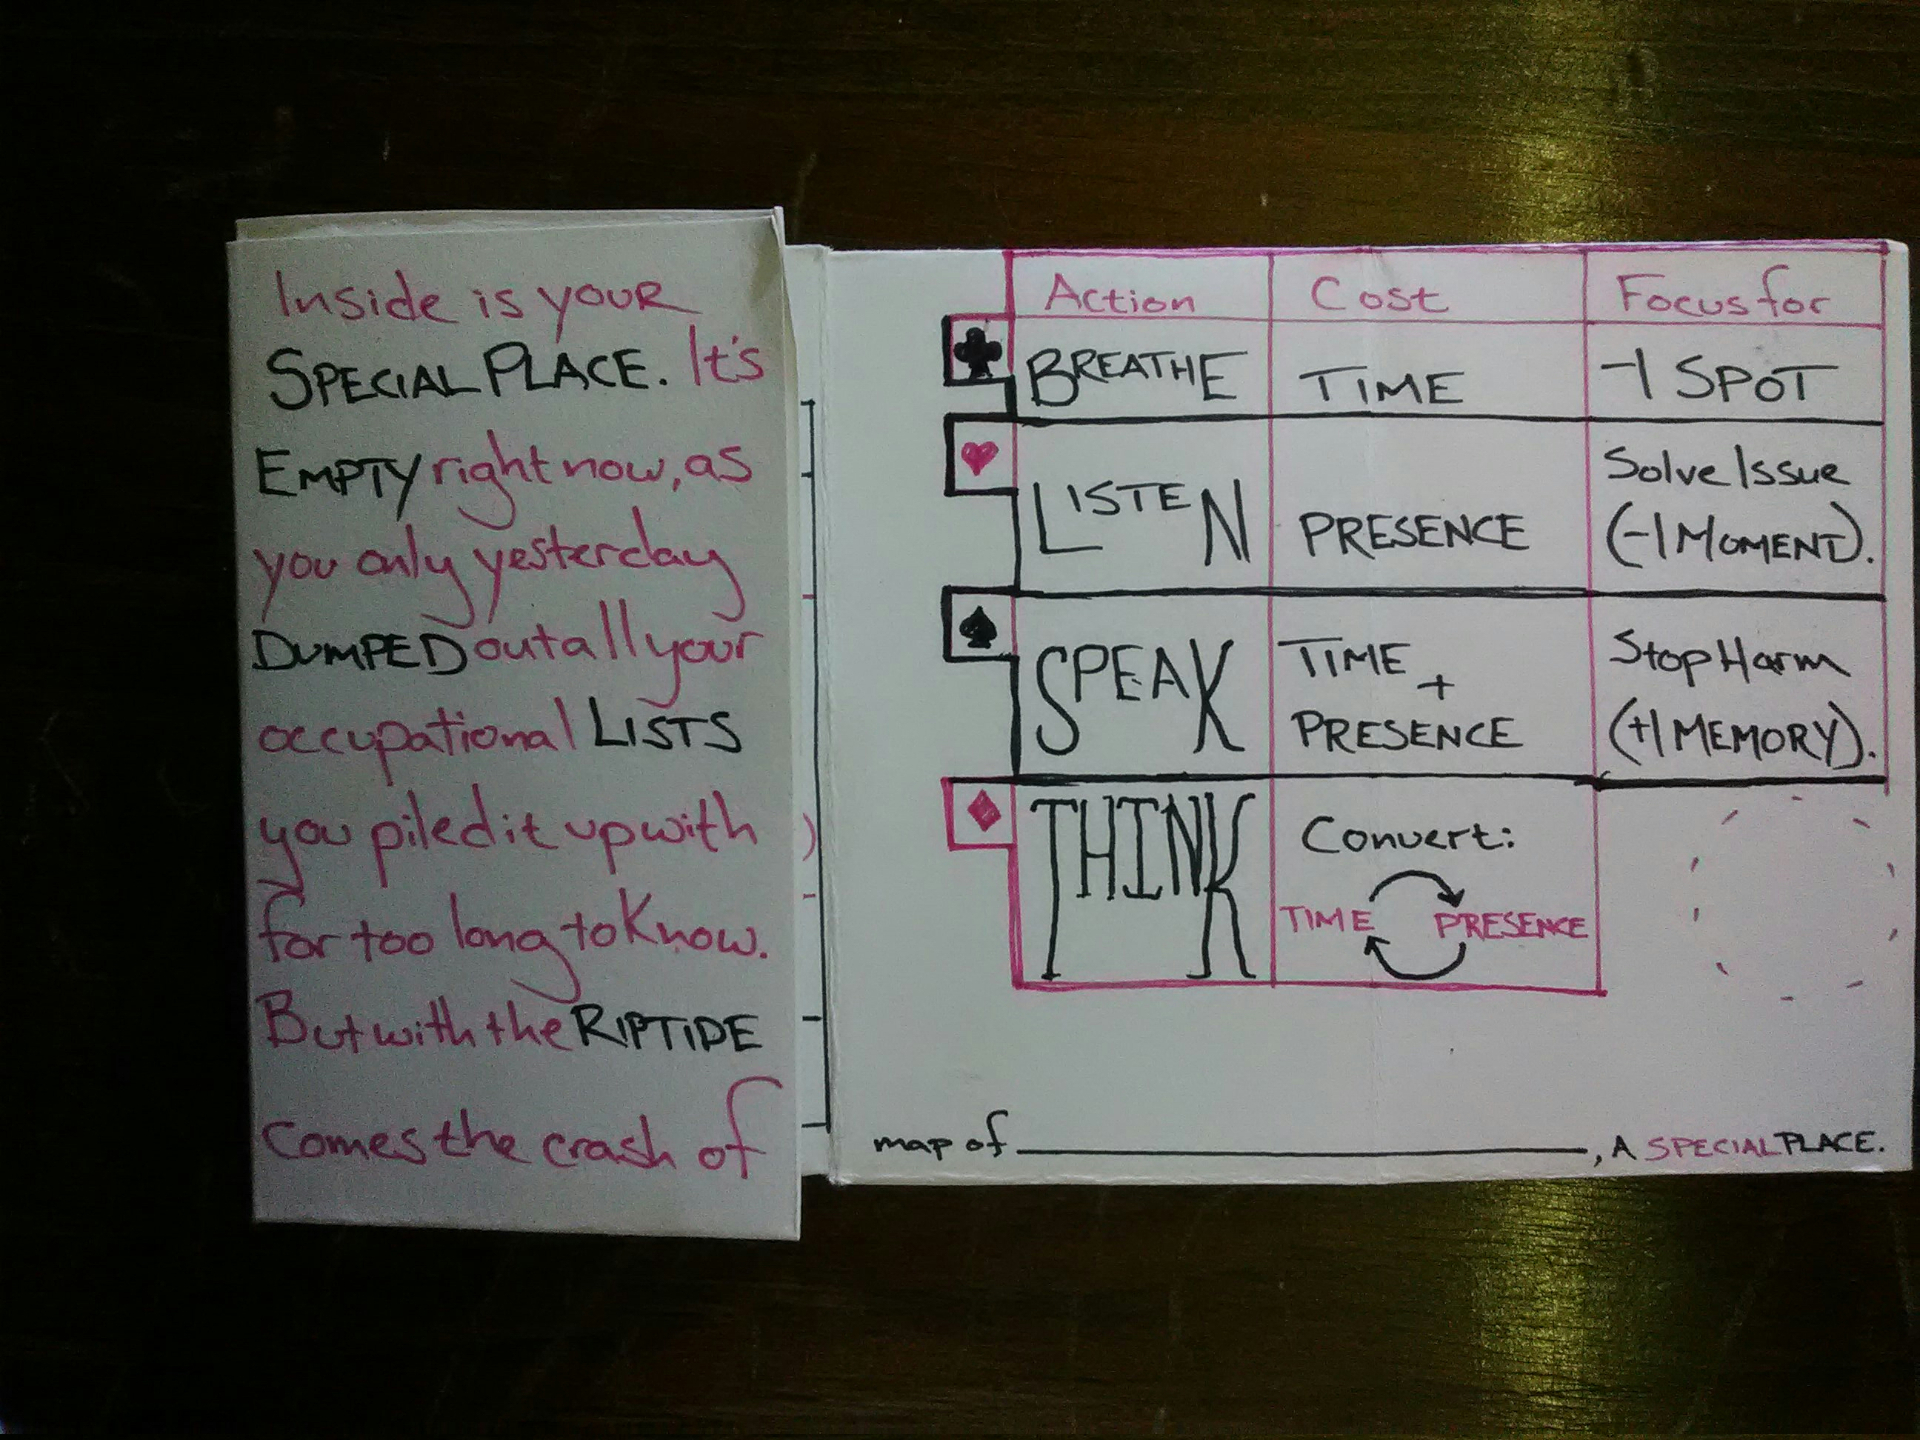 Inside is your
SPECIAL PLACE. It's
EMPTY right now, as
you only yesterday
DUMPED out all your
occupational LISTS
you piled it up with
for too long to know.
But with the RIPTIDE
comes the crash of
Action Cost Focus for
BREATHE TIME -1 SPOT
LISTEN PRESENCE Solve Issue
(-1 MOMENT).
SPEAK TIME + PRESENCE Stop Harm
(+1 MEMORY).
THINK Convert:
TIME PRESENCE
map of ____________________, A SPECIAL PLACE.